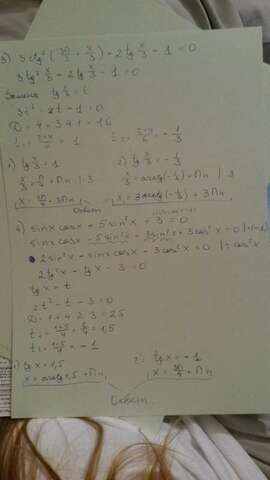 3) 3ctg²(3π/2 + x/3) - 2tg x/3 - 1 = 0
3tg² x/3 - 2tg x/3 - 1 = 0
Замена tg x/3 = t
3t² - 2t - 1 = 0
D = 4 + 3·4 · 1 = 16
t₁ = (2+4)/6 = 1 t₂ = (2-4)/6 = -1/3
1) tg x/3 = 1 2) tg x/3 = -1/3
x/3 = π/4 + πn |·3 x/3 = arctg(-1/3) + πn | 3
x = 3π/4 + 3πn x = 3arctg(-1/3) + 3πn
Ответ
4) sinx cosx - 5sin²x + 3 = 0
sinx cosx - 5sin²x + 3sin²x + 3cos²x = 0 |·(-1)
2sin²x - sinx cosx - 3cos²x = 0 |: cos²x
2tg²x - tgx - 3 = 0
tgx = t
2t² - t - 3 = 0
D = 1 + 4·2·3 = 25
t₁ = (1+5)/4 = 6/4 = 1,5
t₂ = (1-5)/4 = -1
1) tgx = 1,5 2) tgx = -1
x = arctg1,5 + πn x = 3π/4 + πn
Ответ